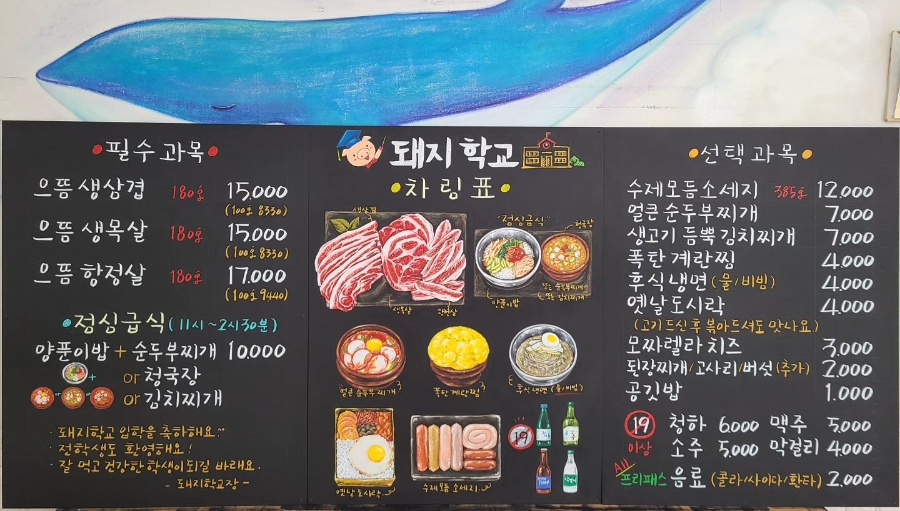 필수 과목
으뜸 생삼겹 180g 15,000
(100g 8330)
으뜸 생목살 180g 15,000
(100g 8330)
으뜸 항정살 180g 17,000
(100g 9440)
점심급식 (11시~2시30분)
양푼이밥 + 순두부찌개 10,000
+ or 청국장
+ + or 김치찌개
· 돼지학교 입학을 축하해요~
· 전학생도 환영해요!
· 잘 먹고 건강한 학생이 되길 바래요.
- 돼지학교장 -
돼지 학교
차림표
생삼겹
생목살
항정살
"점심급식"
청국장
양푼이밥
또는 김치찌개
얼큰 순두부찌개
폭탄 계란찜
후식냉면 (물/비빔)
옛날 도시락
수제모듬 소세지
19
선택 과목
수제모듬소세지 385g 12,000
얼큰 순두부찌개 7,000
생고기 듬뿍 김치찌개 7,000
폭탄 계란찜 4,000
후식냉면 (물/비빔) 4,000
옛날도시락 4,000
(고기드신후 볶아드셔도 맛나요)
모짜렐라치즈 3,000
된장찌개/고사리/버섯 (추가) 2,000
공깃밥 1,000
19 이상 청하 6,000 맥주 5,000
소주 5,000 막걸리 4,000
All 프리패스 음료 (콜라/사이다/환타) 2,000